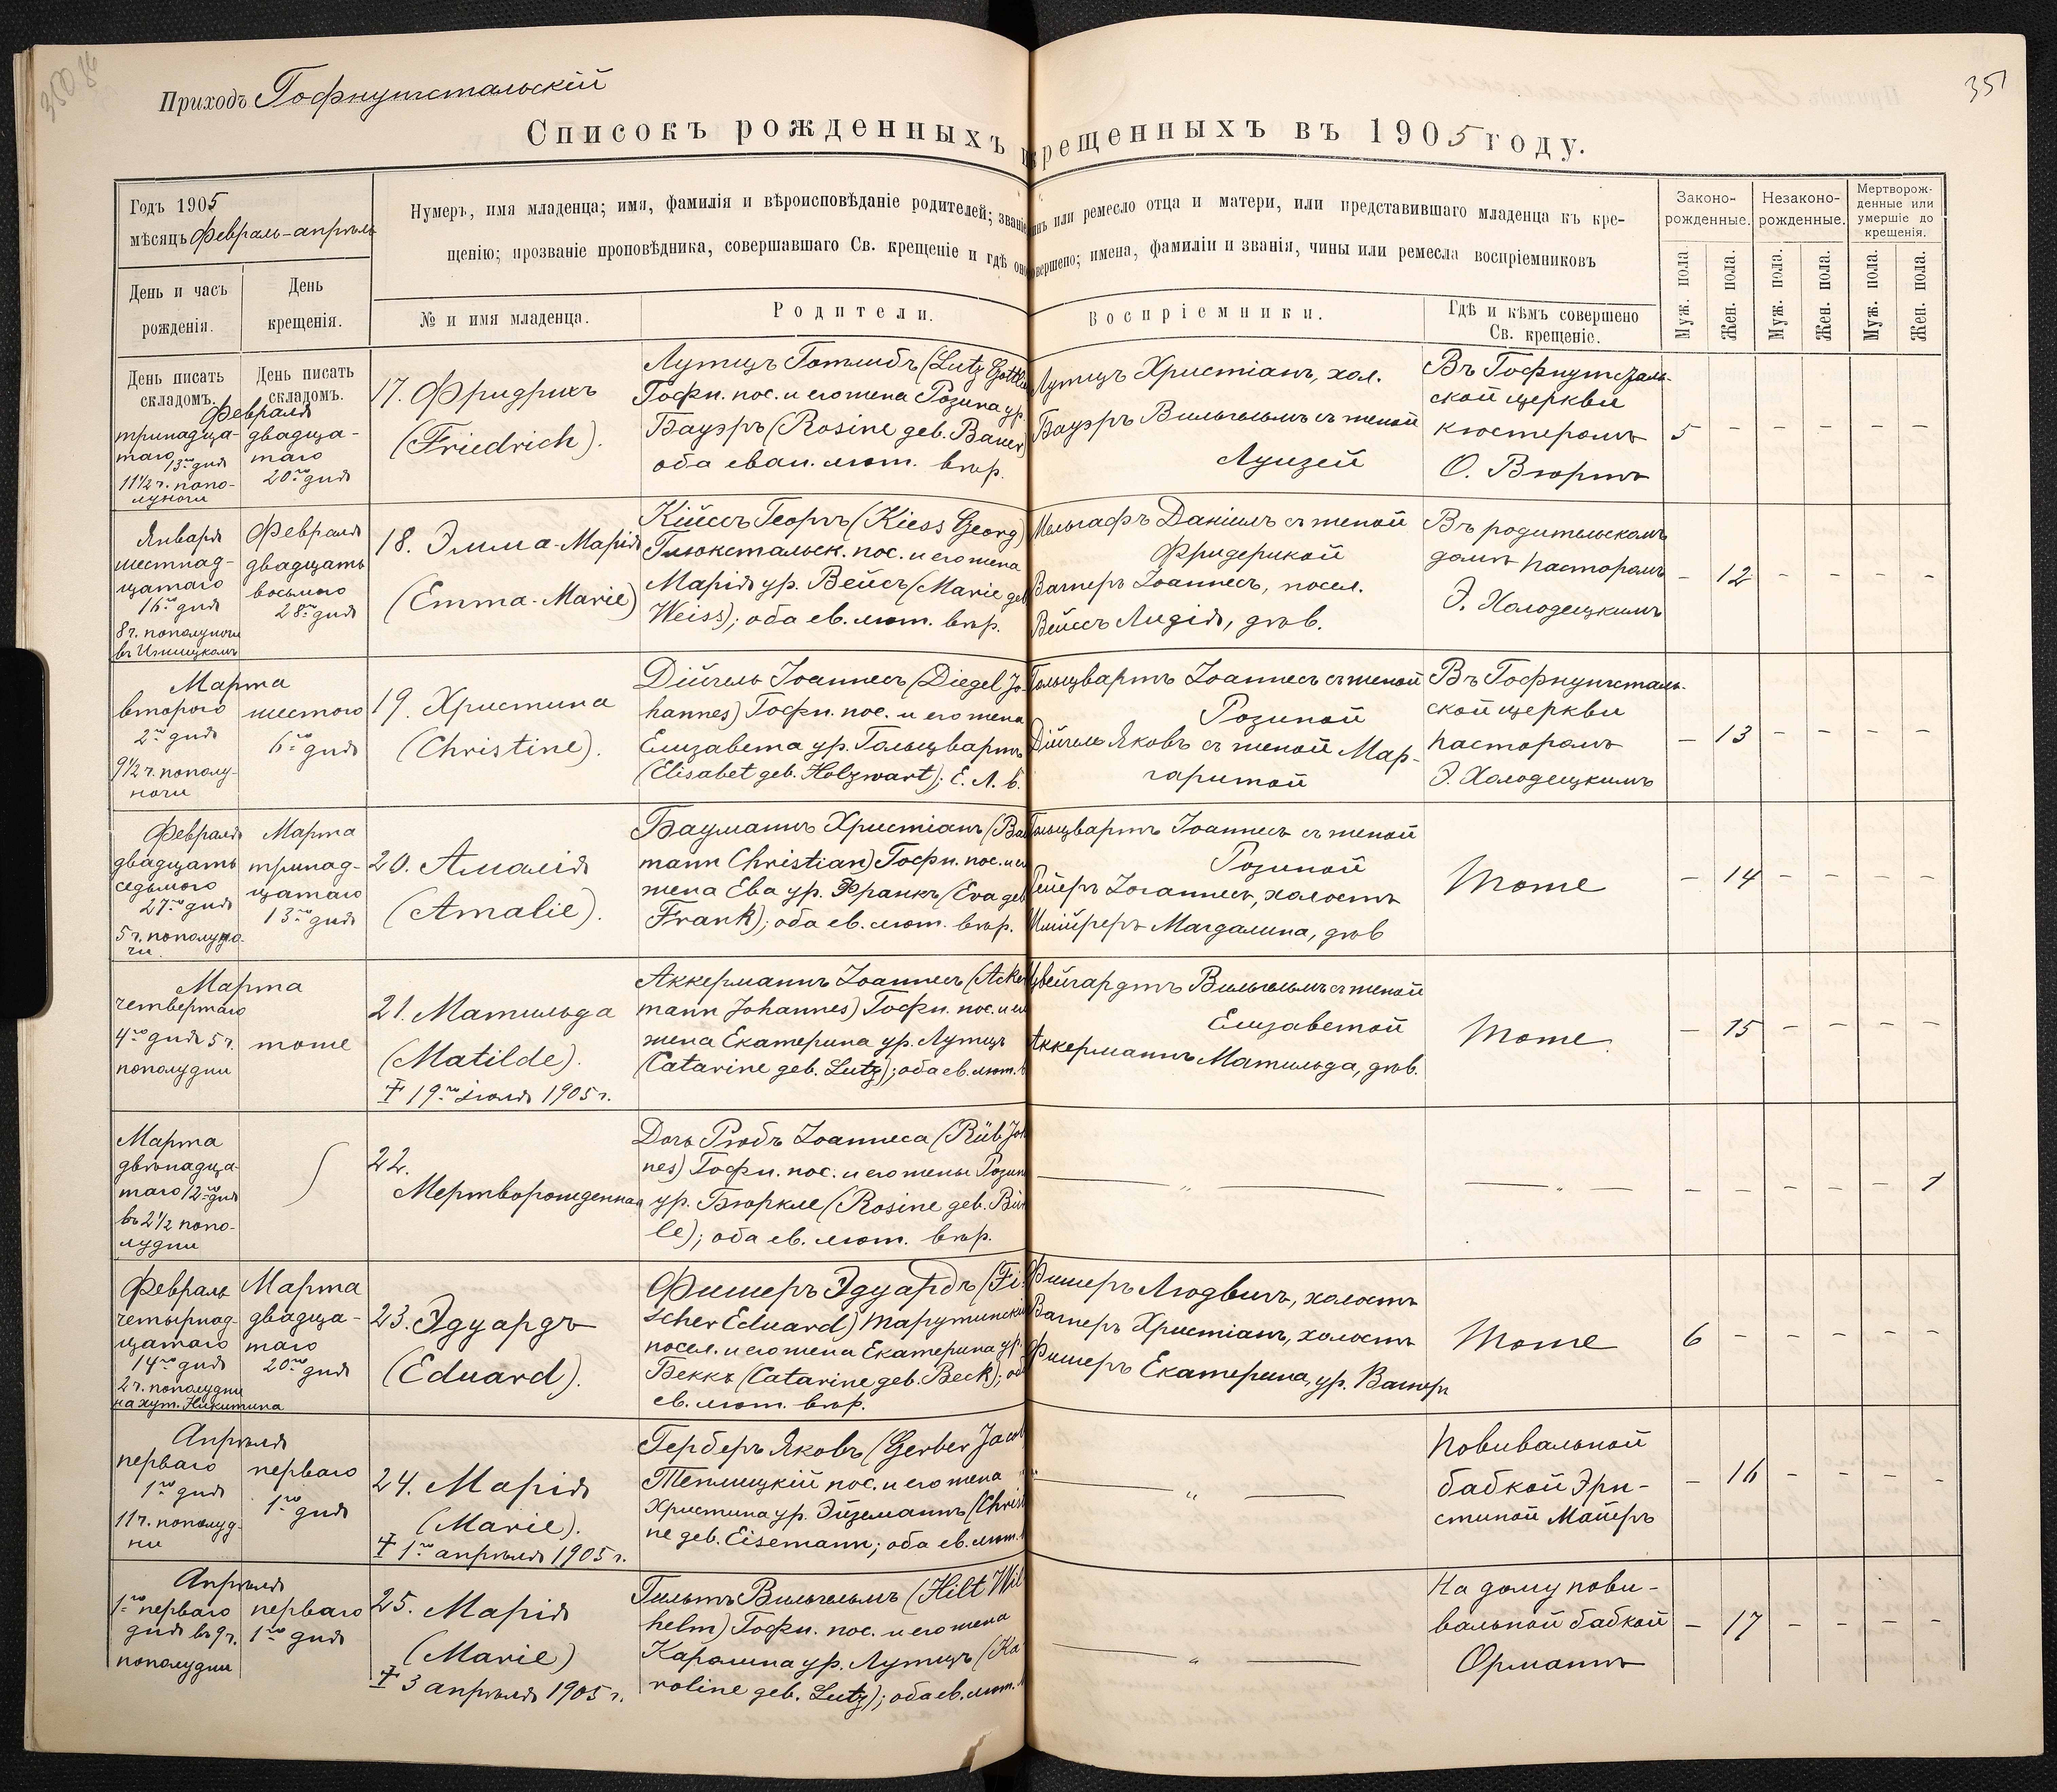 350 об
351
Приходъ Гофнунгстальскій
Списокъ рожденныхъ и крещенныхъ въ 1905 году.
Годъ 1905
мѣсяцъ Февраль-апрѣль
Нумеръ, имя младенца; имя, фамилія и вѣроисповѣданіе родителей; званіе, чинъ или ремесло отца и матери, или представившаго младенца къ кре-
щенію; прозваніе проповѣдника, совершавшаго Св. крещеніе и гдѣ оно совершено; имена, фамиліи и званія, чины или ремесла воспріемниковъ
Законо-
рожденные.
Незаконо-
рожденные.
Мертворож-
денные или
умершіе до
крещенія.
День и часъ
рожденія.
День
крещенія.
№ и имя младенца.
Родители.
Воспріемники.
Гдѣ и кѣмъ совершено
Св. крещеніе.
Муж. пола
Жен. пола.
Муж. пола.
Жен. пола.
Муж. пола.
Жен. пола.
День писать
складомъ.
День писать
складомъ.
Февраля
тринадца-
таго 13го дня
11½ ч. попо-
луночи
двадца-
таго
20го дня
17. Фридрихъ
(Friedrich).
Лутцъ Готлибъ (Lutz Gottli
Гофн. пос. и его жена Розина ур.
Бауэръ (Rosine geb. Bauer)
оба еван. лют. вѣр.
Лутцъ Христіанъ, хол.
Бауэръ Вильгельмъ съ женой
Луизей
Въ Гофнунгсталь-
ской церкви
кюстеромъ
О. Вюртъ
5 – – – – –
Января
шестнад-
цатаго
16го дня
8 ч. пополуночи
Февраля
двадцать
восьмого
28го дня
18. Эмма-Марія
(Emma-Marie)
Кійсъ Георгъ (Kiess Georg)
Глюкстальск. пос. и его жена
Марія ур. Вейсъ (Marie geb
Weiss); оба ев. лют. вѣр.
Мельгафъ Даніилъ съ женой
Фридерикой
Вагнеръ Іоаннесъ, посел.
Вейсъ Лидія, дѣв.
Въ родительскомъ
домѣ пасторомъ
Э. Холодецкимъ
– 12 – – – –
Марта
второго
2го дня
9½ ч. пополу-
ночи
шестого
6го дня
19. Христина
(Christine).
Дійгель Іоаннесъ (Diegel Jo-
hannes) Гофн. пос. и его жена
Елизавета ур. Гольцвартъ
(Elisabet geb. Holzwart); Е. Л. в.
Гольцвартъ Іоаннесъ съ женой
Розиной
Дійгель Яковъ съ женой Мар-
гаритой
Въ Гофнунгсталь-
ской церкви
пасторомъ
Э. Холодецкимъ
– 13 – – – –
Февраля
двадцать
седьмого
27го дня
5 ч. пополуно-
чи.
Марта
тринад-
цатаго
13го дня
20. Амалія
(Amalie).
Бауманъ Христіанъ (Bau
mann Christian) Гофн. пос. и его
жена Ева ур. Франкъ (Eva geb
Frank); оба ев. лют. вѣр.
Гольцвартъ Іоаннесъ съ женой
Розиной
Гейеръ Іоганнесъ, холостъ
Магдалина, дѣв
тоже
– 14 – – – –
Марта
четвертаго
4го дня 5 ч.
пополудни
тоже
21. Матильда
(Matilde).
† 19го іюля 1905 г.
Аккерманъ Іоаннесъ (Acker
mann Johannes) Гофн. пос. и его
жена Екатерина ур. Лутцъ
(Catarine geb. Lutz); оба ев. лют.
Цвейгардтъ Вильгельмъ съ женой
Елизаветой
Аккерманъ Матильда, дѣв.
тоже.
– 15 – – – –
Марта
двѣнадца-
таго 12го дня
въ 2½ попо-
лудни
22.
Мертворожденная
Дочь Рюбъ Іоаннеса (Rüb Joh
nes) Гофн. пос. и его жены Розин
ур. Бюркле (Rosine geb. Bür
le); оба ев. лют. вѣр.
— „ —
— „ —
– – – – – 1
Февраль
четырнад-
цатаго
14го дня
2 ч. пополудни
на хут. Никитина
Марта
двадца-
таго
20го дня
23. Эдуардъ
(Eduard).
Фишеръ Эдуардъ (Fi-
scher Eduard) Тарутинскій
посел. и его жена Екатерина ур.
Беккъ (Catarine geb. Beck); оба
ев. лют. вѣр.
Фишеръ Людвигъ, холостъ
Вагнеръ Христіанъ, холостъ
Фишеръ Екатерина, ур. Вагнеръ
тоже
6 – – – – –
Апрѣля
перваго
1го дня
11 ч. пополуд-
ни
перваго
1го дня
24. Марія
(Marie).
† 1го апрѣля 1905 г.
Герберъ Яковъ (Gerber Jacob
Теплицкій пос. и его жена
Христина ур. Эйземанъ (Christi
ne geb. Eisemann; оба ев. лют.
— „ —
Повивальной
бабкой Эрн-
стиной Майеръ
– 16 – – – –
Апрѣля
1го перваго
дня въ 9 ч.
пополудни
перваго
1го дня
25. Марія
(Marie)
† 3 апрѣля 1905 г.
Гильтъ Вильгельмъ (Hilt Wil-
helm) Гофн. пос. и его жена
Каролина ур. Лутцъ (Ka-
roline geb. Lutz); оба ев. лют.
— „ —
На дому пови-
вальной бабкой
Орманъ
– 17 – – – –